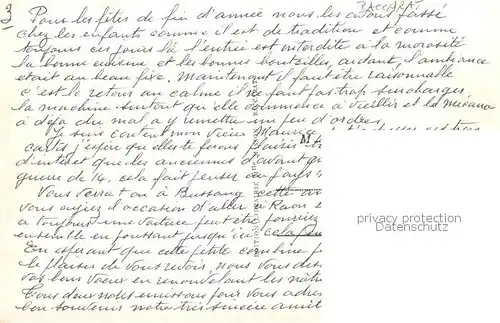 3
BACCARAT
Pour les fêtes de fin d'année nous les avons passé
chez les enfants comme il est de tradition et comme
toujours ces jours là l'entrée est interdite à la morosité
la bonne cuisine et les bonnes bouteilles, aidant, l'ambiance
etait au beau fixe. Maintenant il faut être raisonnable
c'est le retour au calme il ne faut pas trop surcharger
la machine surtout qu'elle commence à vieillir et le mécano
a déja du mal a y remettre un peu d'ordre.
Je suis content mon vieux Maurice
cartes j'espère qu'elles te feront plaisir
d'interet que les anciennes d'avant
guerre de 14. cela fait penser au pays
Vous verra t on à Bussang cette
vous aurez l'occasion d'aller à Raon
a toujours une voiture peut être pourriez
ensemble en poussant jusqu'ici
En esperant que cette petite combine
le plaisir de vous revoir, nous vous
vos bons vœux en renouvelant les
Tous deux nous unissons pour vous
bon souvenir notre très sincère
M
privacy protection
Datenschutz